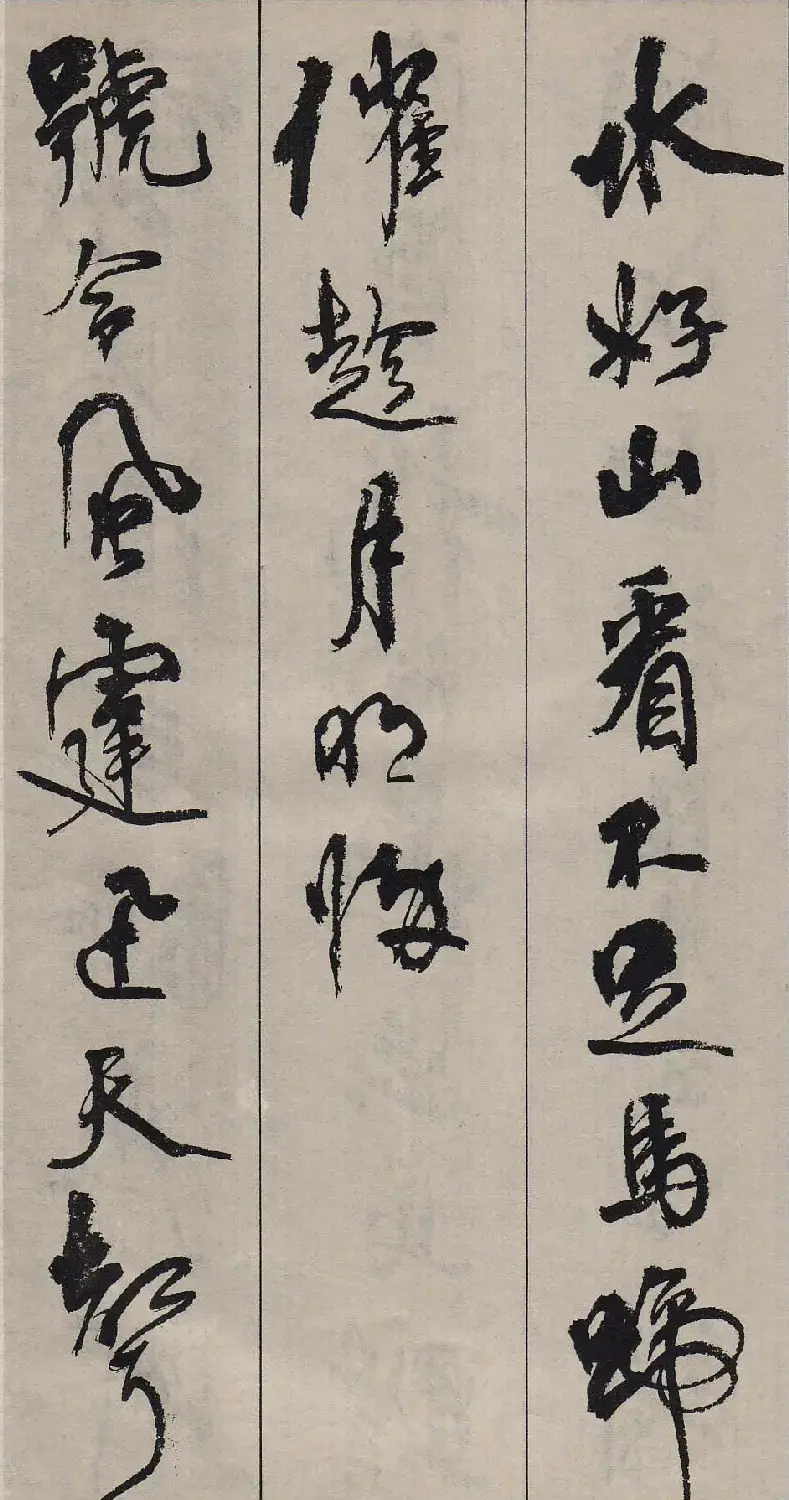 水好山看不足馬蹄
催趁月明歸
號令風霆迅天聲